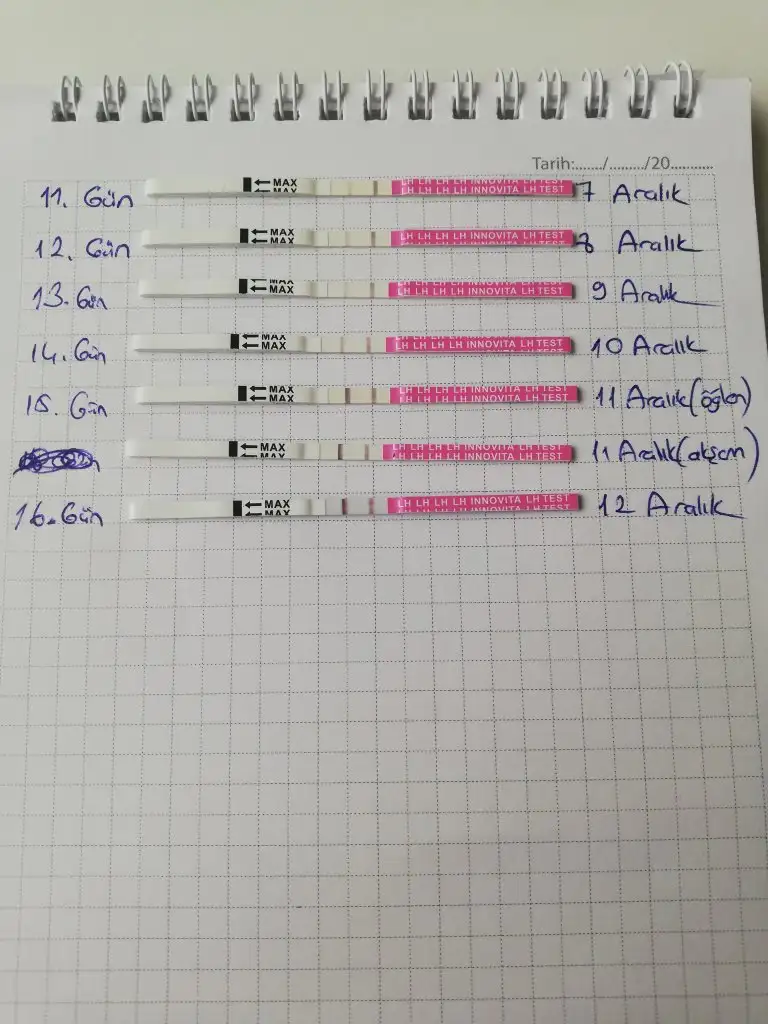 Tarih:....../......../20...........
11. Gün ← MAX ← MAX LH LH LH LH INNOVITA LH TEST LH LH LH LH INNOVITA LH TEST 7 Aralık
12. Gün ← MAX ← MAX LH LH LH LH INNOVITA LH TEST LH LH LH LH INNOVITA LH TEST 8 Aralık
13. Gün ← MAX ← MAX LH LH LH LH INNOVITA LH TEST LH LH LH LH INNOVITA LH TEST 9 Aralık
14. Gün ← MAX ← MAX LH LH LH LH INNOVITA LH TEST LH LH LH LH INNOVITA LH TEST 10 Aralık
15. Gün ← MAX ← MAX LH LH LH LH INNOVITA LH TEST LH LH LH LH INNOVITA LH TEST 11 Aralık (öğlen)
← MAX ← MAX LH LH LH LH INNOVITA LH TEST LH LH LH LH INNOVITA LH TEST 11 Aralık (akşam)
16. Gün ← MAX ← MAX LH LH LH LH INNOVITA LH TEST LH LH LH LH INNOVITA LH TEST 12 Aralık